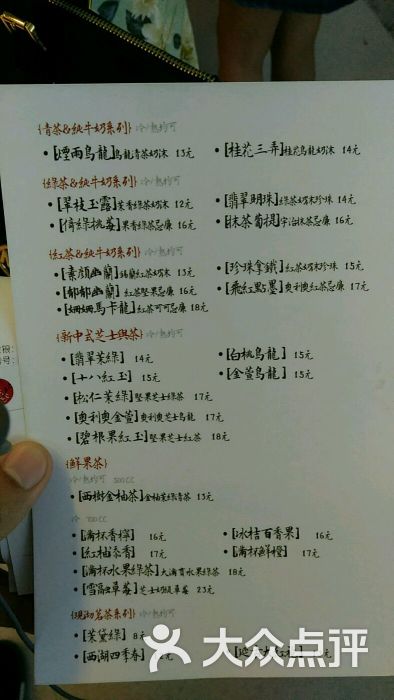 {青茶&純牛奶系列} 冷/熱均可
•[煙雨烏龍]烏龍青茶奶沫 13元 •[桂花三弄]桂花烏龍奶沫 14元
{綠茶&純牛奶系列} 冷/熱均可
•[翠枝玉露]茉香綠茶奶沫 12元 •[翡翠明珠]綠茶奶沫珍珠 14元
•[倚綠桃莓]果香綠茶忌廉 16元 •[抹茶菊提]宇治抹茶忌廉 16元
{紅茶&純牛奶系列} 冷/熱均可
•[素顏幽蘭]錫蘭紅茶奶沫 13元 •[珍珠拿鐵]紅茶奶沫珍珠 15元
•[郁郁幽蘭]紅茶堅果忌廉 16元 •[飛紅點墨]奧利奧紅茶忌廉 17元
•[姍姍馬卡龍]紅茶可可忌廉 18元
{新中式芝士與茶} 冷/熱均可
•[翡翠茉綠] 14元 •[白桃烏龍] 15元
•[十八紅玉] 15元 •[金萱烏龍] 15元
•[松仁茉綠]堅果芝士綠茶 17元
•[奧利奧金萱]奧利奧芝士烏龍 17元
•[碧根果紅玉]堅果芝士紅茶 18元
{鮮果茶}
冷/熱均可 500CC
•[西樹金柚茶]金柚茉綠青茶 13元
冷 700CC
•[滿杯香檸] 16元 •[冰桔百香果] 16元
•[紅柚添香] 17元 •[滿杯鮮橙] 17元
•[滿杯水果綠茶]大滿貫水果綠茶 18元
•[雪融草莓]芝士奶緹草莓 23元
{現沏茗茶系列} 冷/熱均可
•[茉黛綠] 8元
•[西湖四季春]
大众点评